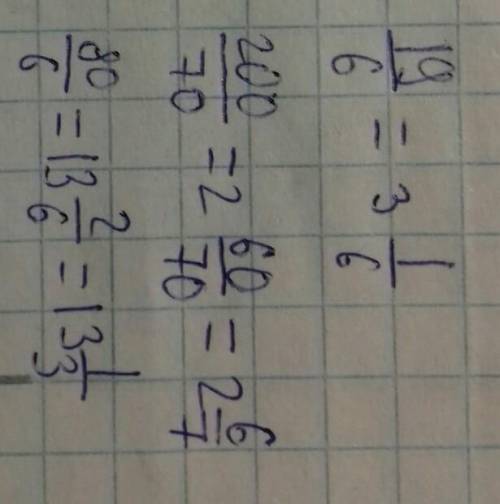 19/6 = 3 1/6
200/70 = 2 60/70 = 2 6/7
80/6 = 13 2/6 = 13 1/3